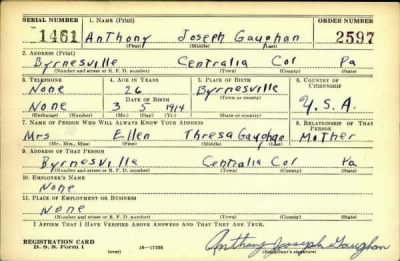 SERIAL NUMBER 1. NAME (Print) ORDER NUMBER
1461 Anthony Joseph Gaughan 2597
(First) (Middle) (Last)
2. ADDRESS (Print)
Byrnesville Centralia Col Pa
(Number and street or R. F. D. number) (Town) (County) (State)
3. TELEPHONE 4. AGE IN YEARS 5. PLACE OF BIRTH 6. COUNTRY OF CITIZENSHIP
None 26 Byrnesville
DATE OF BIRTH (Town or county)
None 3 5 1914 U.S.A.
(Exchange) (Number) (Mo.) (Day) (Yr.) (State or country)
7. NAME OF PERSON WHO WILL ALWAYS KNOW YOUR ADDRESS 8. RELATIONSHIP OF THAT PERSON
Mrs Ellen Thresa Gaughan Mother
(Mr., Mrs., Miss) (First) (Middle) (Last)
9. ADDRESS OF THAT PERSON
Byrnesville Centralia Col Pa
(Number and street or R. F. D. number) (Town) (County) (State)
10. EMPLOYER'S NAME
None
11. PLACE OF EMPLOYMENT OR BUSINESS
None
(Number and street or R. F. D. number) (Town) (County) (State)
I AFFIRM THAT I HAVE VERIFIED ABOVE ANSWERS AND THAT THEY ARE TRUE.
REGISTRATION CARD
D. S. S. Form 1 (over) 16—17105 Anthony Joseph Gaughan
(Registrant's signature)